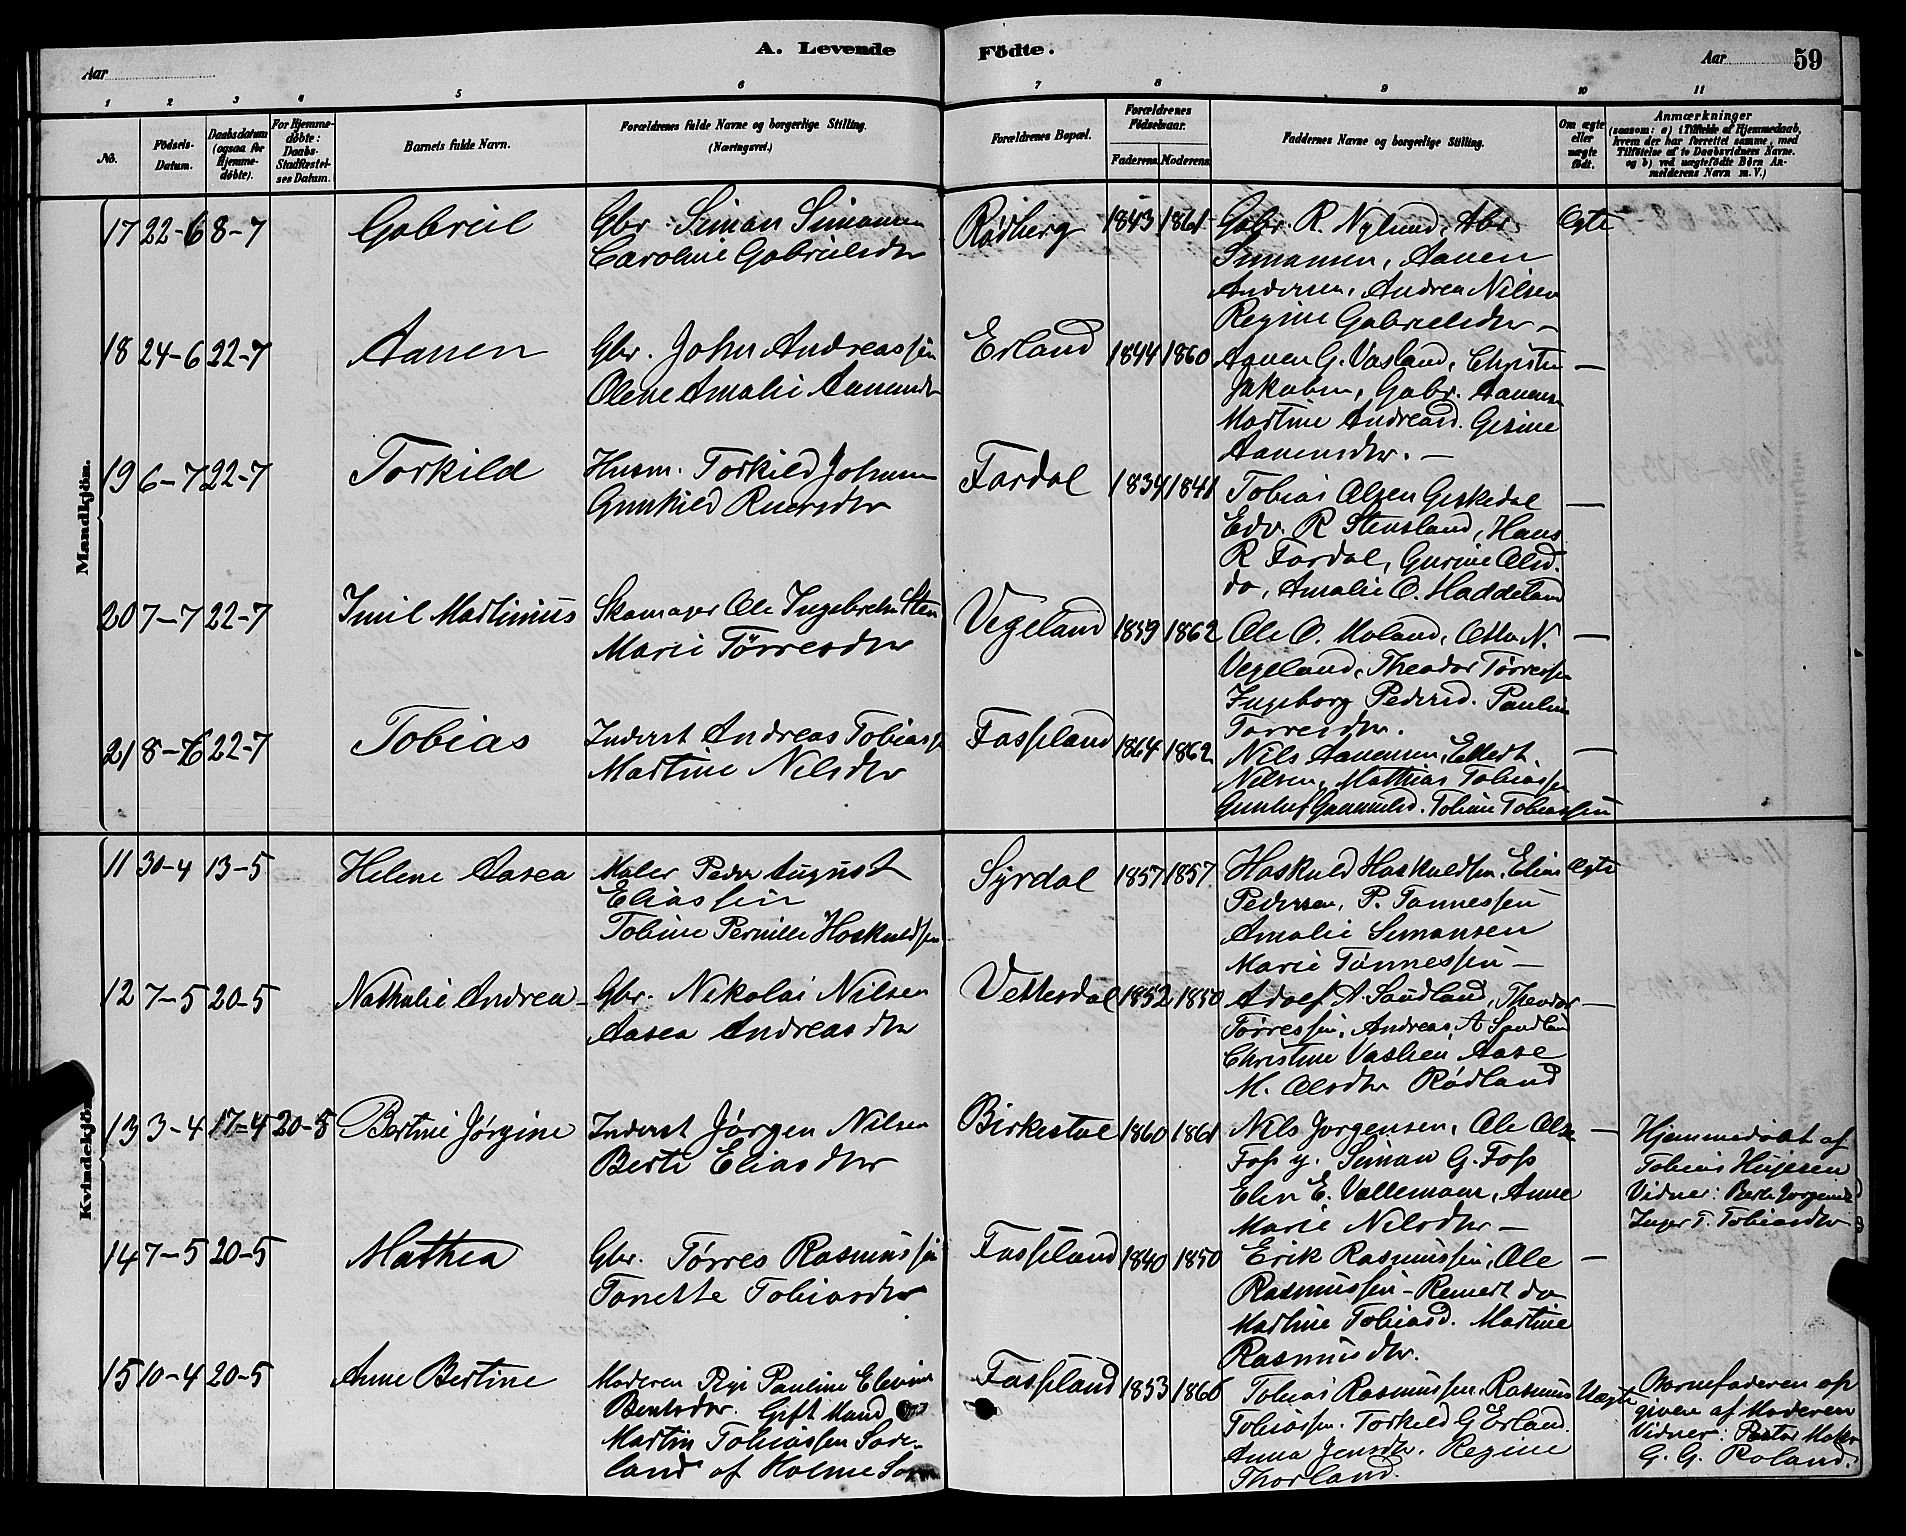 A. Levende Fødte.
Aar
Aar 59
1 2 3 4 5 6 7 8 9 10 11
No.
Födsels-Datum.
Daabsdatum (ogsaa for Hjemme-döbte).
For Hjemme-döbte: Daabs-Stadfæstel-ses Datum.
Barnets fulde Navn.
Forældrenes fulde Navne og borgerlige Stilling.
(Næringsvei.)
Forældrenes Bopæl.
Forældrenes Födselsaar.
Faderens. Moderens.
Faddernes Navne og borgerlige Stilling.
Om ægte eller uægte födt.
Anmærkninger
(saasom: a) i Tilfælde af Hjemmedaab, hvem der har forrettet samme, med Tilföielse af to Daabsvidners Navne. og b) ved uægtefödte Börn An-melderens Navn m. V.)
Mandkjön.
17 22-6 8-7 Gabriel Gbr. Siman Simonsen Rødberg 1843 1861 Gabr. R. Nylund, Abr. Ægte
Caroline Gabrielsdtr Simonsen, Aanen
Andersen, Andrea Nilsen
Regine Gabrielsdtr –
18 24-6 22-7 Aanen Gbr. John Andreassen Erland 1844 1860 Aanen G. Vasland, Christen —
Olene Amalie Aanensdtr Jakobsen, Gabr. Aanensen
Martine Andreasd. Gesine
Aanensdtr. –
19 6-7 22-7 Torkild Husm. Torkild Johnsen Fardal 1834 1841 Tobias Olsen Geskedal —
Gunhild Reiersdtr Edv. R Stensland, Hans
R Fardal, Gurine Olsd.
do, Amalie O. Haddeland
20 7-7 22-7 Imil Martinius Skomager Ole Ingebretsen Vegeland 1859 1862 Ole O. Moland, Otto N. —
Marie Tørresdtr Vegeland, Theodor Tørressen
Ingeborg Pedersd. Pauline
Tørresdtr.
21 8-6 22-7 Tobias Inderst Andreas Tobiassen Fassland 1864 1862 Nils Aanensen, Ellert —
Martine Nilsdtr Nilsen, Mathias Tobiassen
Tobine Tobiassen
Kvindekjön.
11 30-4 13-5 Helene Aasea Maler Peder August Syrdal 1857 1857 Haskuld Haskuldsen, Elias Ægte
Eliassen Pedersen, P. Tønnessen
Tobine Pernille Hoskuldsen Amalie Simonsen
Marie Tønnessen –
12 7-5 20-5 Nathalie Andrea Gbr. Nikolai Nilsen Vettesdal 1852 1850 Adolf A. Sandland, Theodor —
Aasea Andreasdtr Tørressen, Andreas A Sandland
Christine Vaslien Aase
M. Olsdtr Rødland
13 3-4 17-4 20-5 Bertine Jørgine Inderst Jørgen Nilsen Birkestøl 1860 1861 Nils Jørgensen, Ole Olsen — Hjemmedøbt af
Berte Eliasdtr Foss y. Siman G. Foss Tobias
Elen E. Vallemoen, Anne Vidner: Berte Jørgensd
Marie Nilsdtr – Inger T. Tobiasdtr
14 7-5 20-5 Mathea Gbr. Tørres Rasmussen Fassland 1840 1850 Erik Rasmussen, Ole —
Tonette Tobiasdtr Rasmussen – Reinert do
Martine Tobiasd. Martine
Rasmusdtr.
15 10-4 20-5 Anne Bertine Moderen Pige Pauline Elevine Fassland 1853 1866 Tobias Rasmussen, Rasmus Uægte Barnefaderen op
Bentsdtr. Gift Mand Tobiassen. Torkild G Erland given af Moderen
Martin Tobiassen Søre- Anna Jensdtr. Regine Vidner: Pastor
land af Holme Sogn Thorland. G. G. Roland.